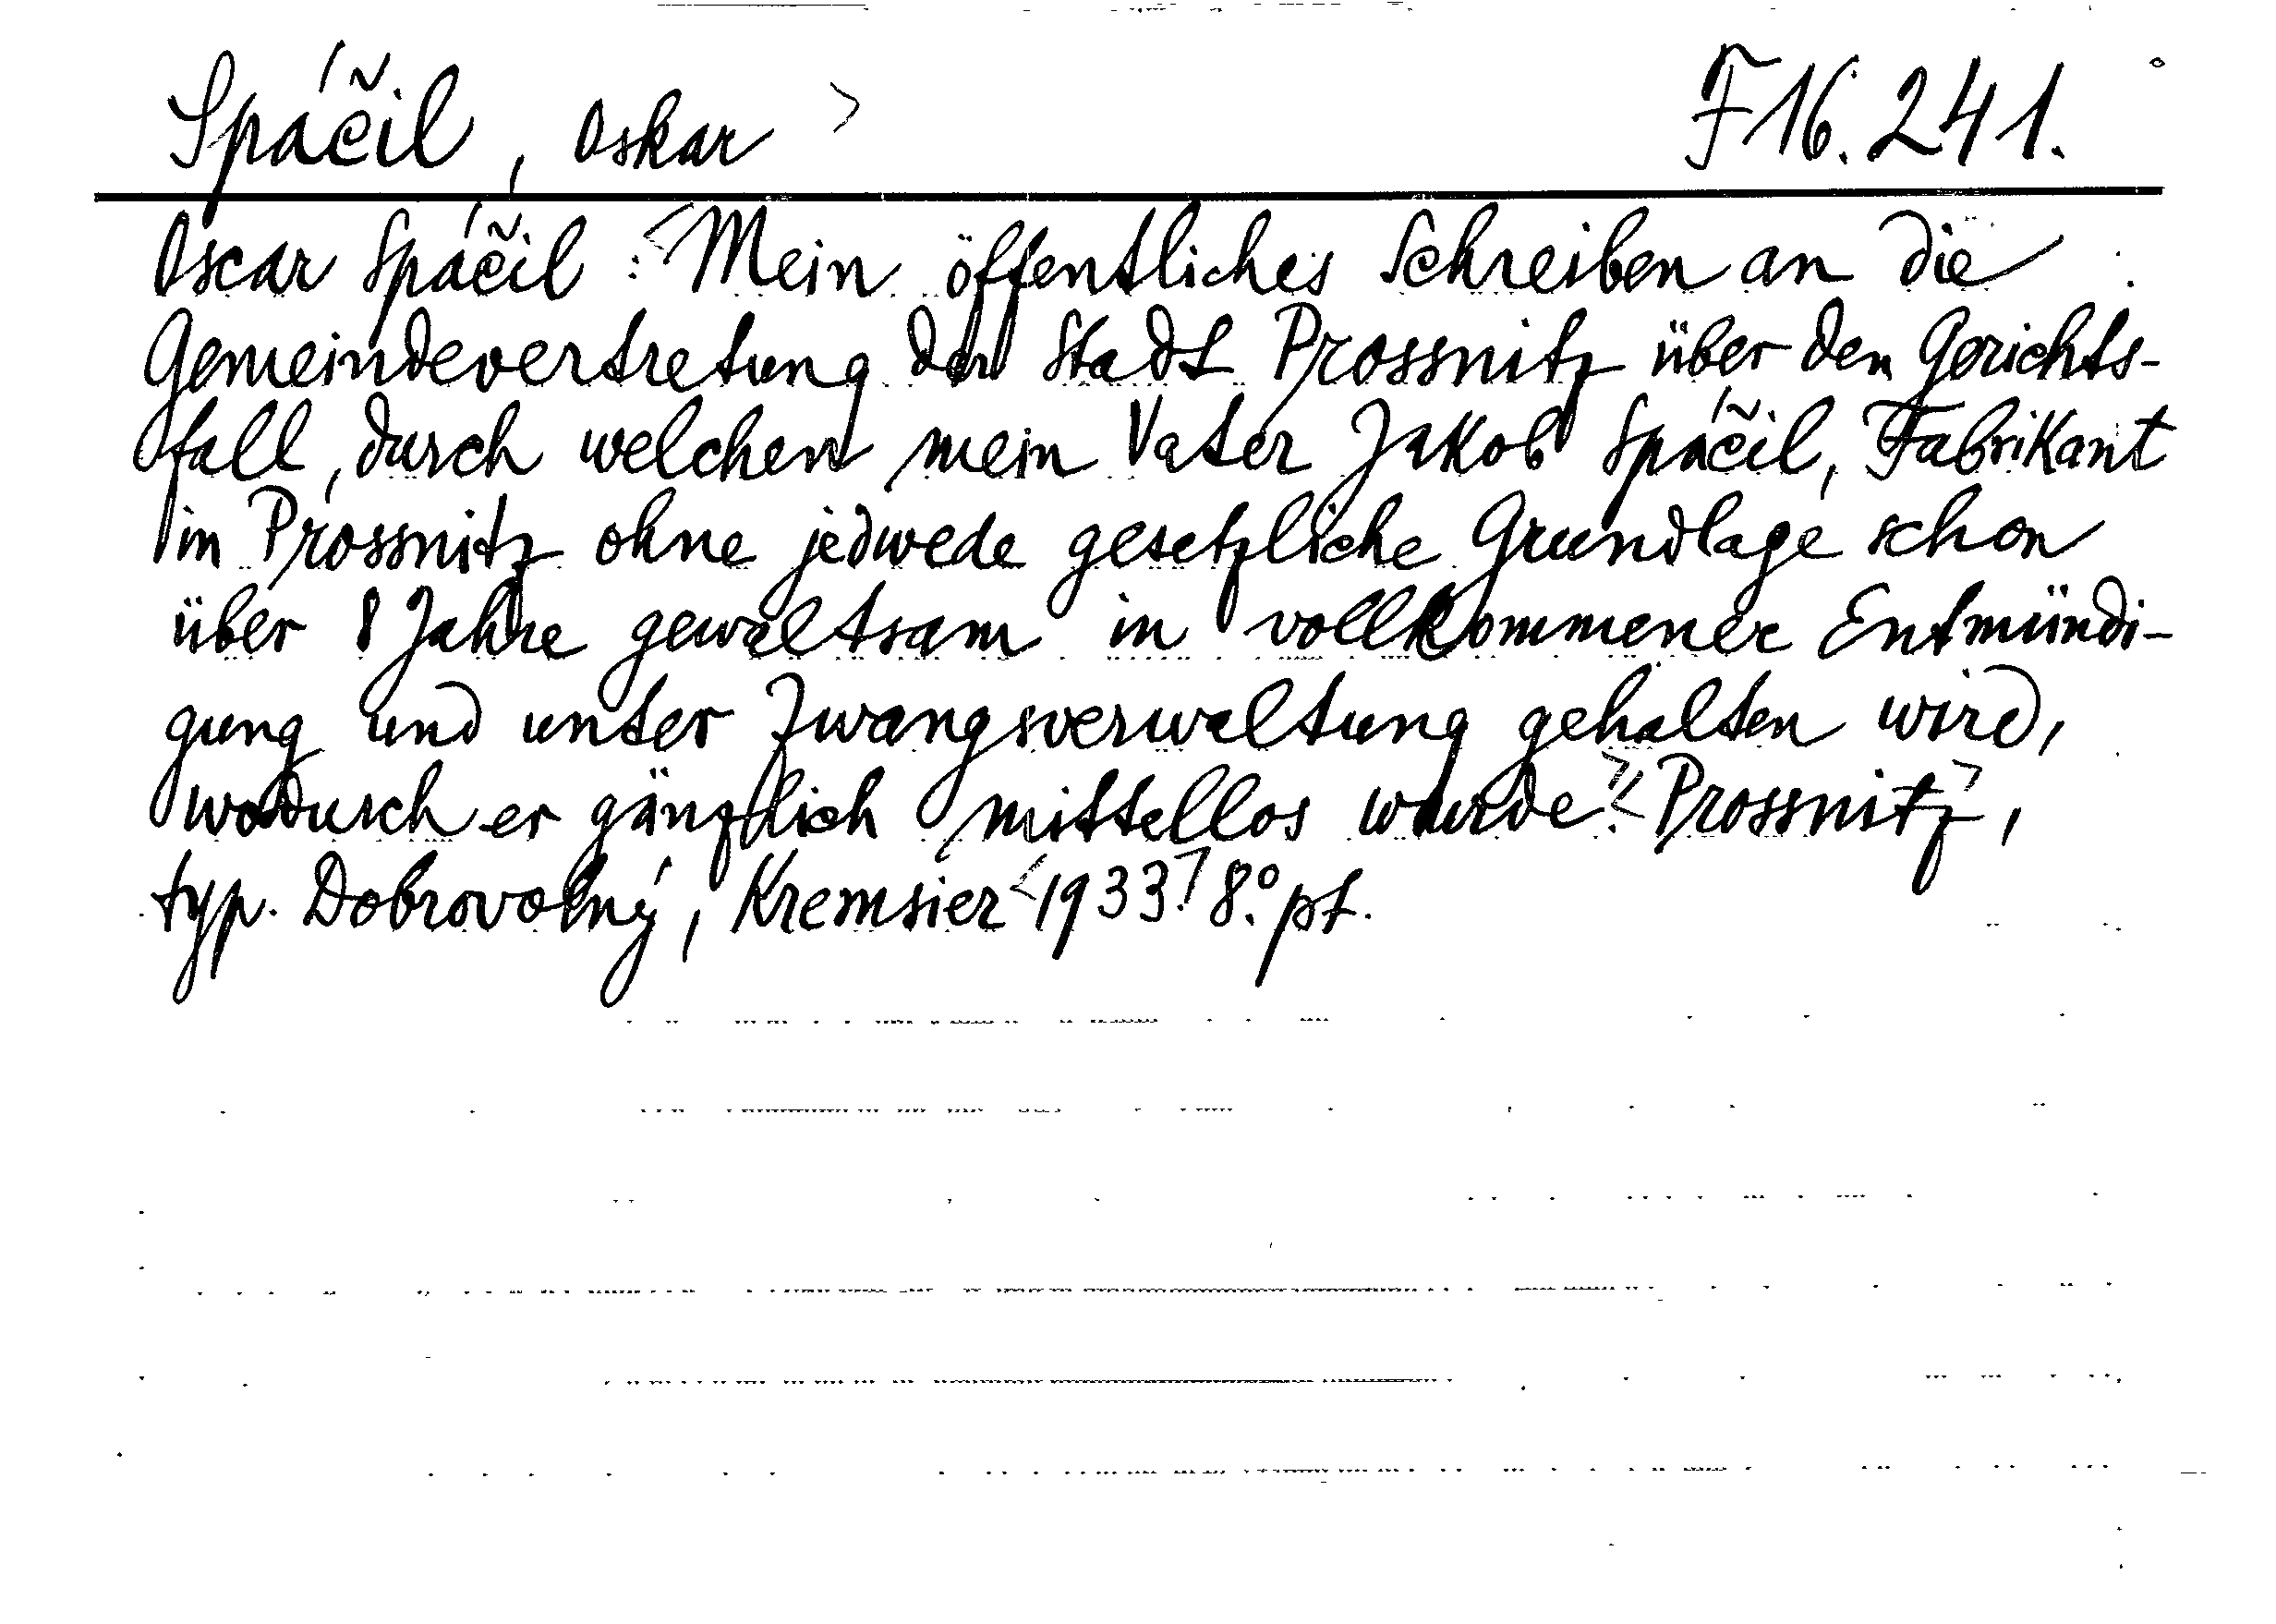 Spáčil, Oskar > F 16.241.
Oscar Spáčil: <Mein öffentliches Schreiben an die
Gemeindevertretung der Stadt Prossnitz über den Gerichts-
fall, durch welchen mein Vater Jakob Spáčil, Fabrikant
in Prossnitz ohne jedwede gesetzliche Grundlage schon
über 8 Jahre gewaltsam in vollkommener Entmündi-
gung und unter Zwangsverwaltung gehalten wird,
wodurch er gänzlich mittellos wurde.> <Prossnitz>,
typ. Dobrovolný, Kremsier <1933.> 8.° pt.